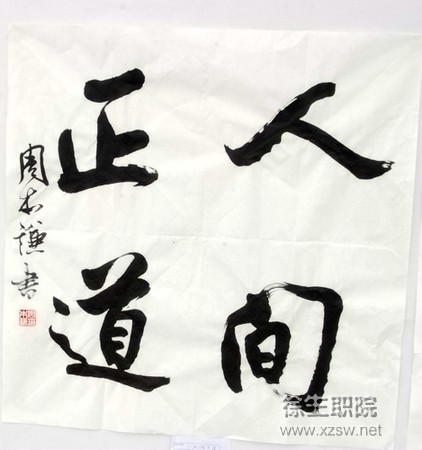 人间
正道
周本謙书
徐生职院
www.xzsw.net